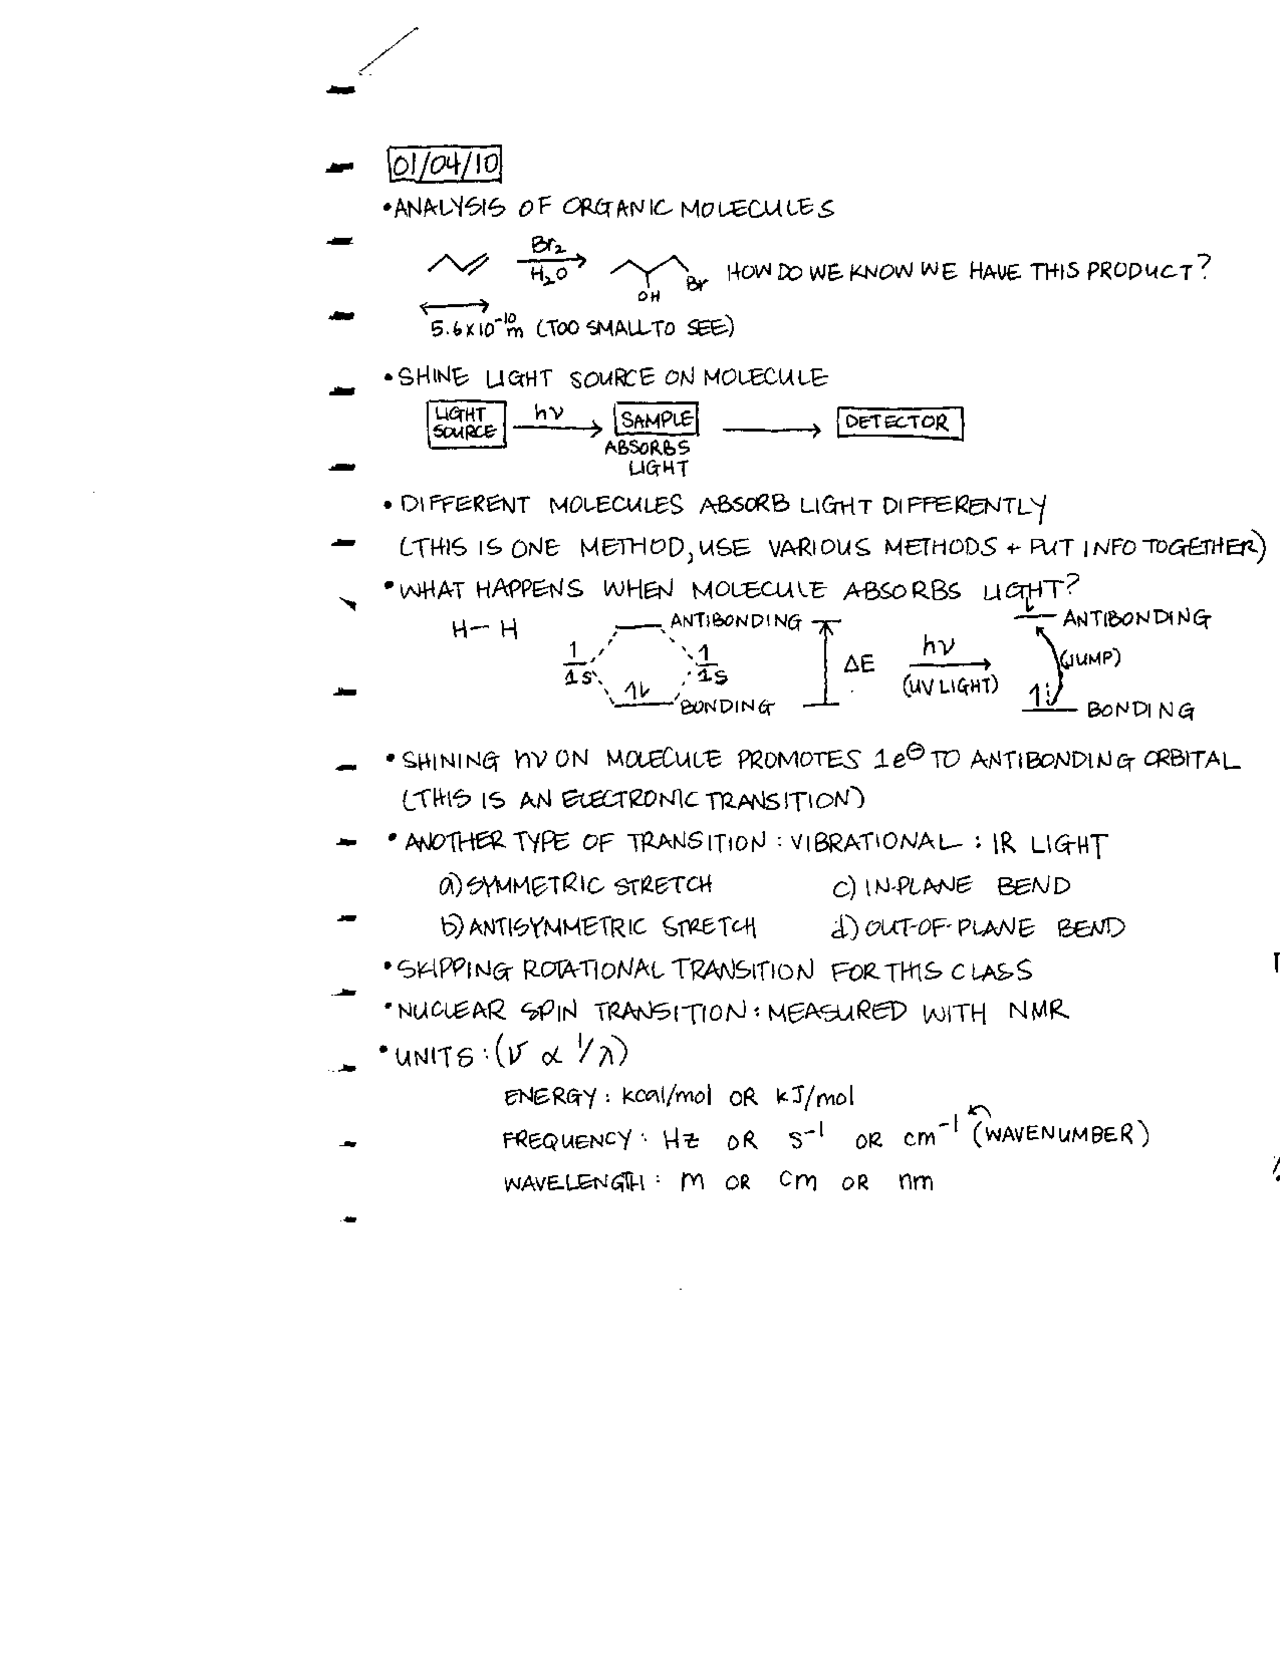 01/04/10
•ANALYSIS OF ORGANIC MOLECULES
Br₂
H₂O
OH
Br
HOW DO WE KNOW WE HAVE THIS PRODUCT?
5.6x10⁻¹⁰m (TOO SMALL TO SEE)
•SHINE LIGHT SOURCE ON MOLECULE
LIGHT SOURCE
hν
SAMPLE
DETECTOR
ABSORBS
LIGHT
•DIFFERENT MOLECULES ABSORB LIGHT DIFFERENTLY
(THIS IS ONE METHOD, USE VARIOUS METHODS + PUT INFO TOGETHER)
•WHAT HAPPENS WHEN MOLECULE ABSORBS LIGHT?
H—H
ANTIBONDING
1
1s
1
1s
1L
BONDING
ΔE
hν
(UV LIGHT)
ANTIBONDING
(JUMP)
BONDING
•SHINING hν ON MOLECULE PROMOTES 1e⊖ TO ANTIBONDING ORBITAL
(THIS IS AN ELECTRONIC TRANSITION)
•ANOTHER TYPE OF TRANSITION: VIBRATIONAL: IR LIGHT
a) SYMMETRIC STRETCH c) IN-PLANE BEND
b) ANTISYMMETRIC STRETCH d) OUT-OF-PLANE BEND
•SKIPPING ROTATIONAL TRANSITION FOR THIS CLASS
•NUCLEAR SPIN TRANSITION: MEASURED WITH NMR
•UNITS: (ν ∝ 1/λ)
ENERGY: kcal/mol OR kJ/mol
FREQUENCY: Hz OR s⁻¹ OR cm⁻¹ (WAVENUMBER)
WAVELENGTH: m OR cm OR nm